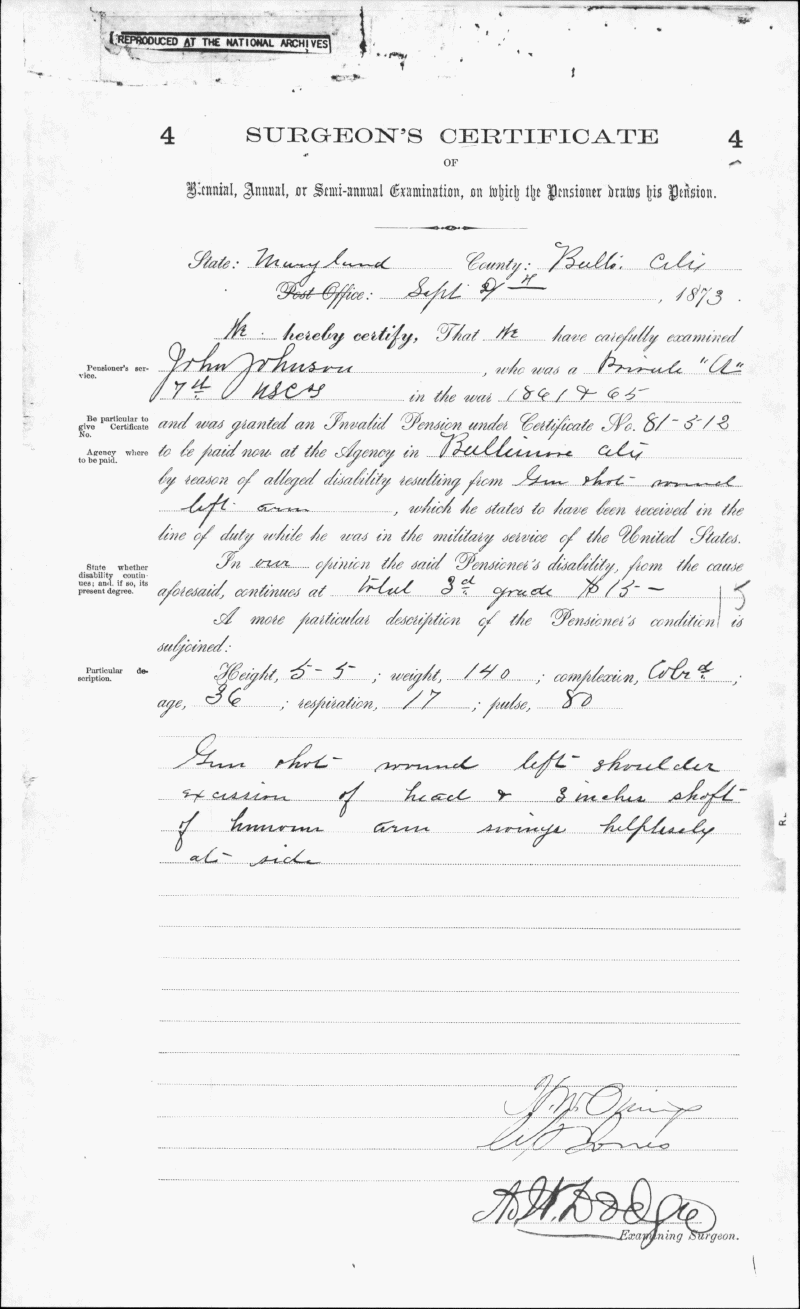 REPRODUCED AT THE NATIONAL ARCHIVES
4 SURGEON'S CERTIFICATE 4
OF
Biennial, Annual, or Semi-annual Examination, on which the Pensioner draws his Pension.
State: Maryland County: Balto. City
Post Office: Sept 4, 1873.
We hereby certify, That We have carefully examined
Pensioner's service.
John Johnson, who was a Private "A"
7th USCT in the war 1861 & 65
Be particular to give Certificate No.
and was granted an Invalid Pension under Certificate No. 81-512
Agency where to be paid.
to be paid now at the Agency in Baltimore City
by reason of alleged disability resulting from Gun shot wound
left arm, which he states to have been received in the
line of duty while he was in the military service of the United States.
In our opinion the said Pensioner's disability, from the cause
State whether disability continues; and, if so, its present degree.
aforesaid, continues at total 3d grade $15-
A more particular description of the Pensioner's condition is
subjoined:
Particular description.
Height, 5-5; weight, 140; complexion, Colrd;
age, 36; respiration, 17; pulse, 80
Gun shot wound left shoulder
excision of head & 3 inches shaft
of humerus arm swings helplessly
at side
Jones
A. W. Dodge
Examining Surgeon.